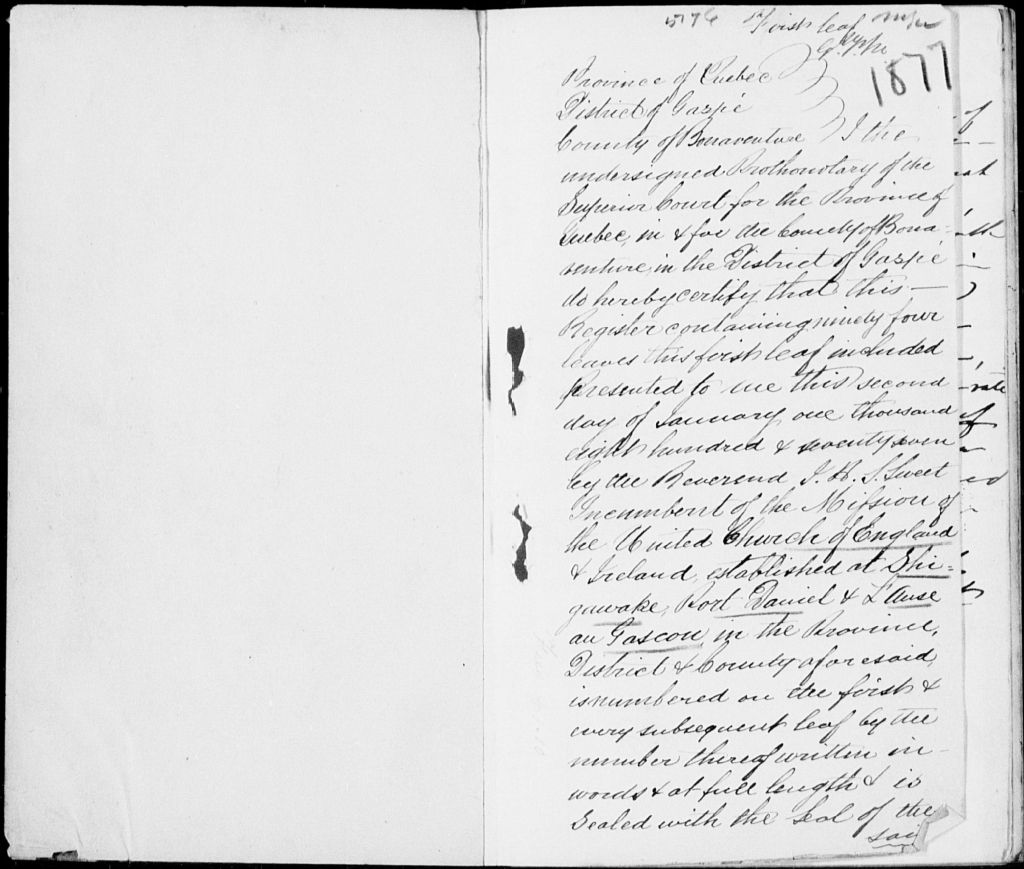 5776 First leaf
G. Sphr.
1877
Province of Quebec
District of Gaspé
County of Bonaventure I the
undersigned Prothonotary of the
Superior Court for the Province of
Quebec, in & for the County of Bona-
venture, in the District of Gaspé
do hereby certify that this —
Register containing ninety four
leaves this first leaf included
presented to me this second
day of January one thousand
eight hundred & seventy seven
by the Reverend J. H. S. Sweet
Incumbent of the Mission of
the United Church of England
& Ireland, established at Shi-
gawake, Port Daniel & L'Anse
au Gascon, in the Province,
District & County aforesaid,
is numbered on the first &
every subsequent leaf by the
number thereof written in
words & at full length & is
Sealed with the Seal of the
said